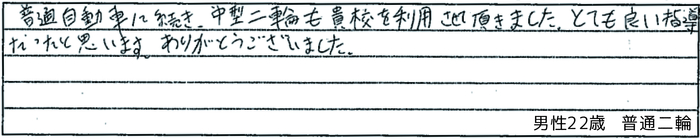 普通自動車に続き、中型二輪も貴校を利用させて頂きました。とても良い指導
だったと思います。ありがとうございました。
男性22歳　普通二輪